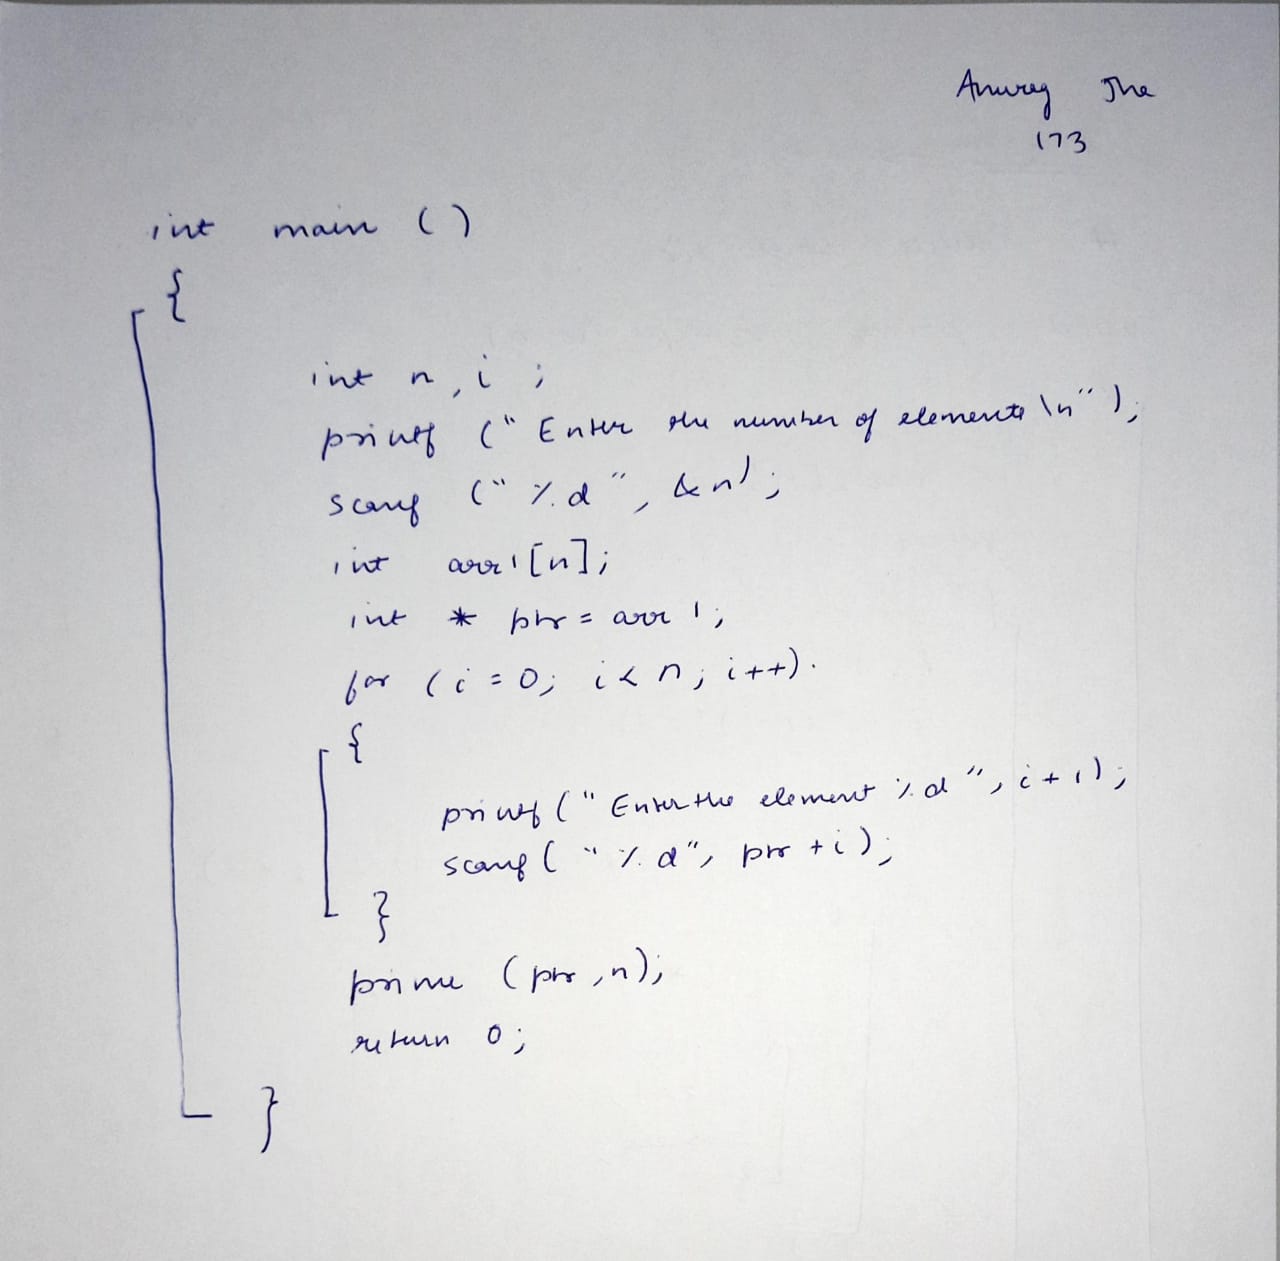 Anurag Jha
173
int main ()
{
int n, i ;
printf ("Enter the number of elements \n");
scanf ("%d", &n);
int arr1[n];
int * ptr = arr1;
for (i = 0; i < n; i++).
{
printf ("Enter the element %d", i+1);
scanf ("%d", ptr + i);
}
prime (ptr, n);
return 0;
}